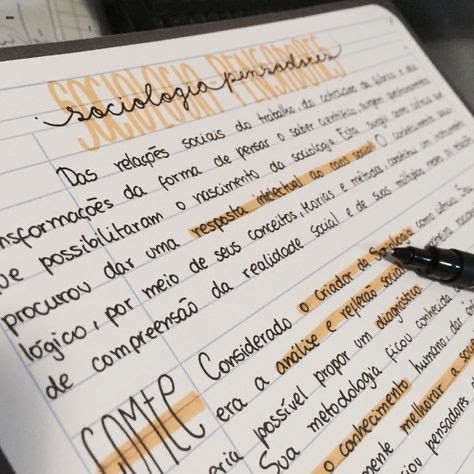 SOCIOLOGIA PENSADORES
sociologia pensadores
Das relações sociais do trabalho, do cotidiano da fábrica e das
nsformações da forma de pensar o saber científico, surgem
que possibilitaram o nascimento da sociologia. Esta surge como
procurou dar uma resposta intelectual ao caos social. O conhecimento
lógico, por meio de seus conceitos, teorias e métodos, constitui um instrumento
de compreensão da realidade social e de suas múltiplas redes
COMTE
Considerado o Criador da Sociologia
era a análise e reflexão social
eria possível propor um diagnóstico
Sua metodologia ficou conhecida
o conhecimento humano, dar
mente melhorar a
ciou pensadores